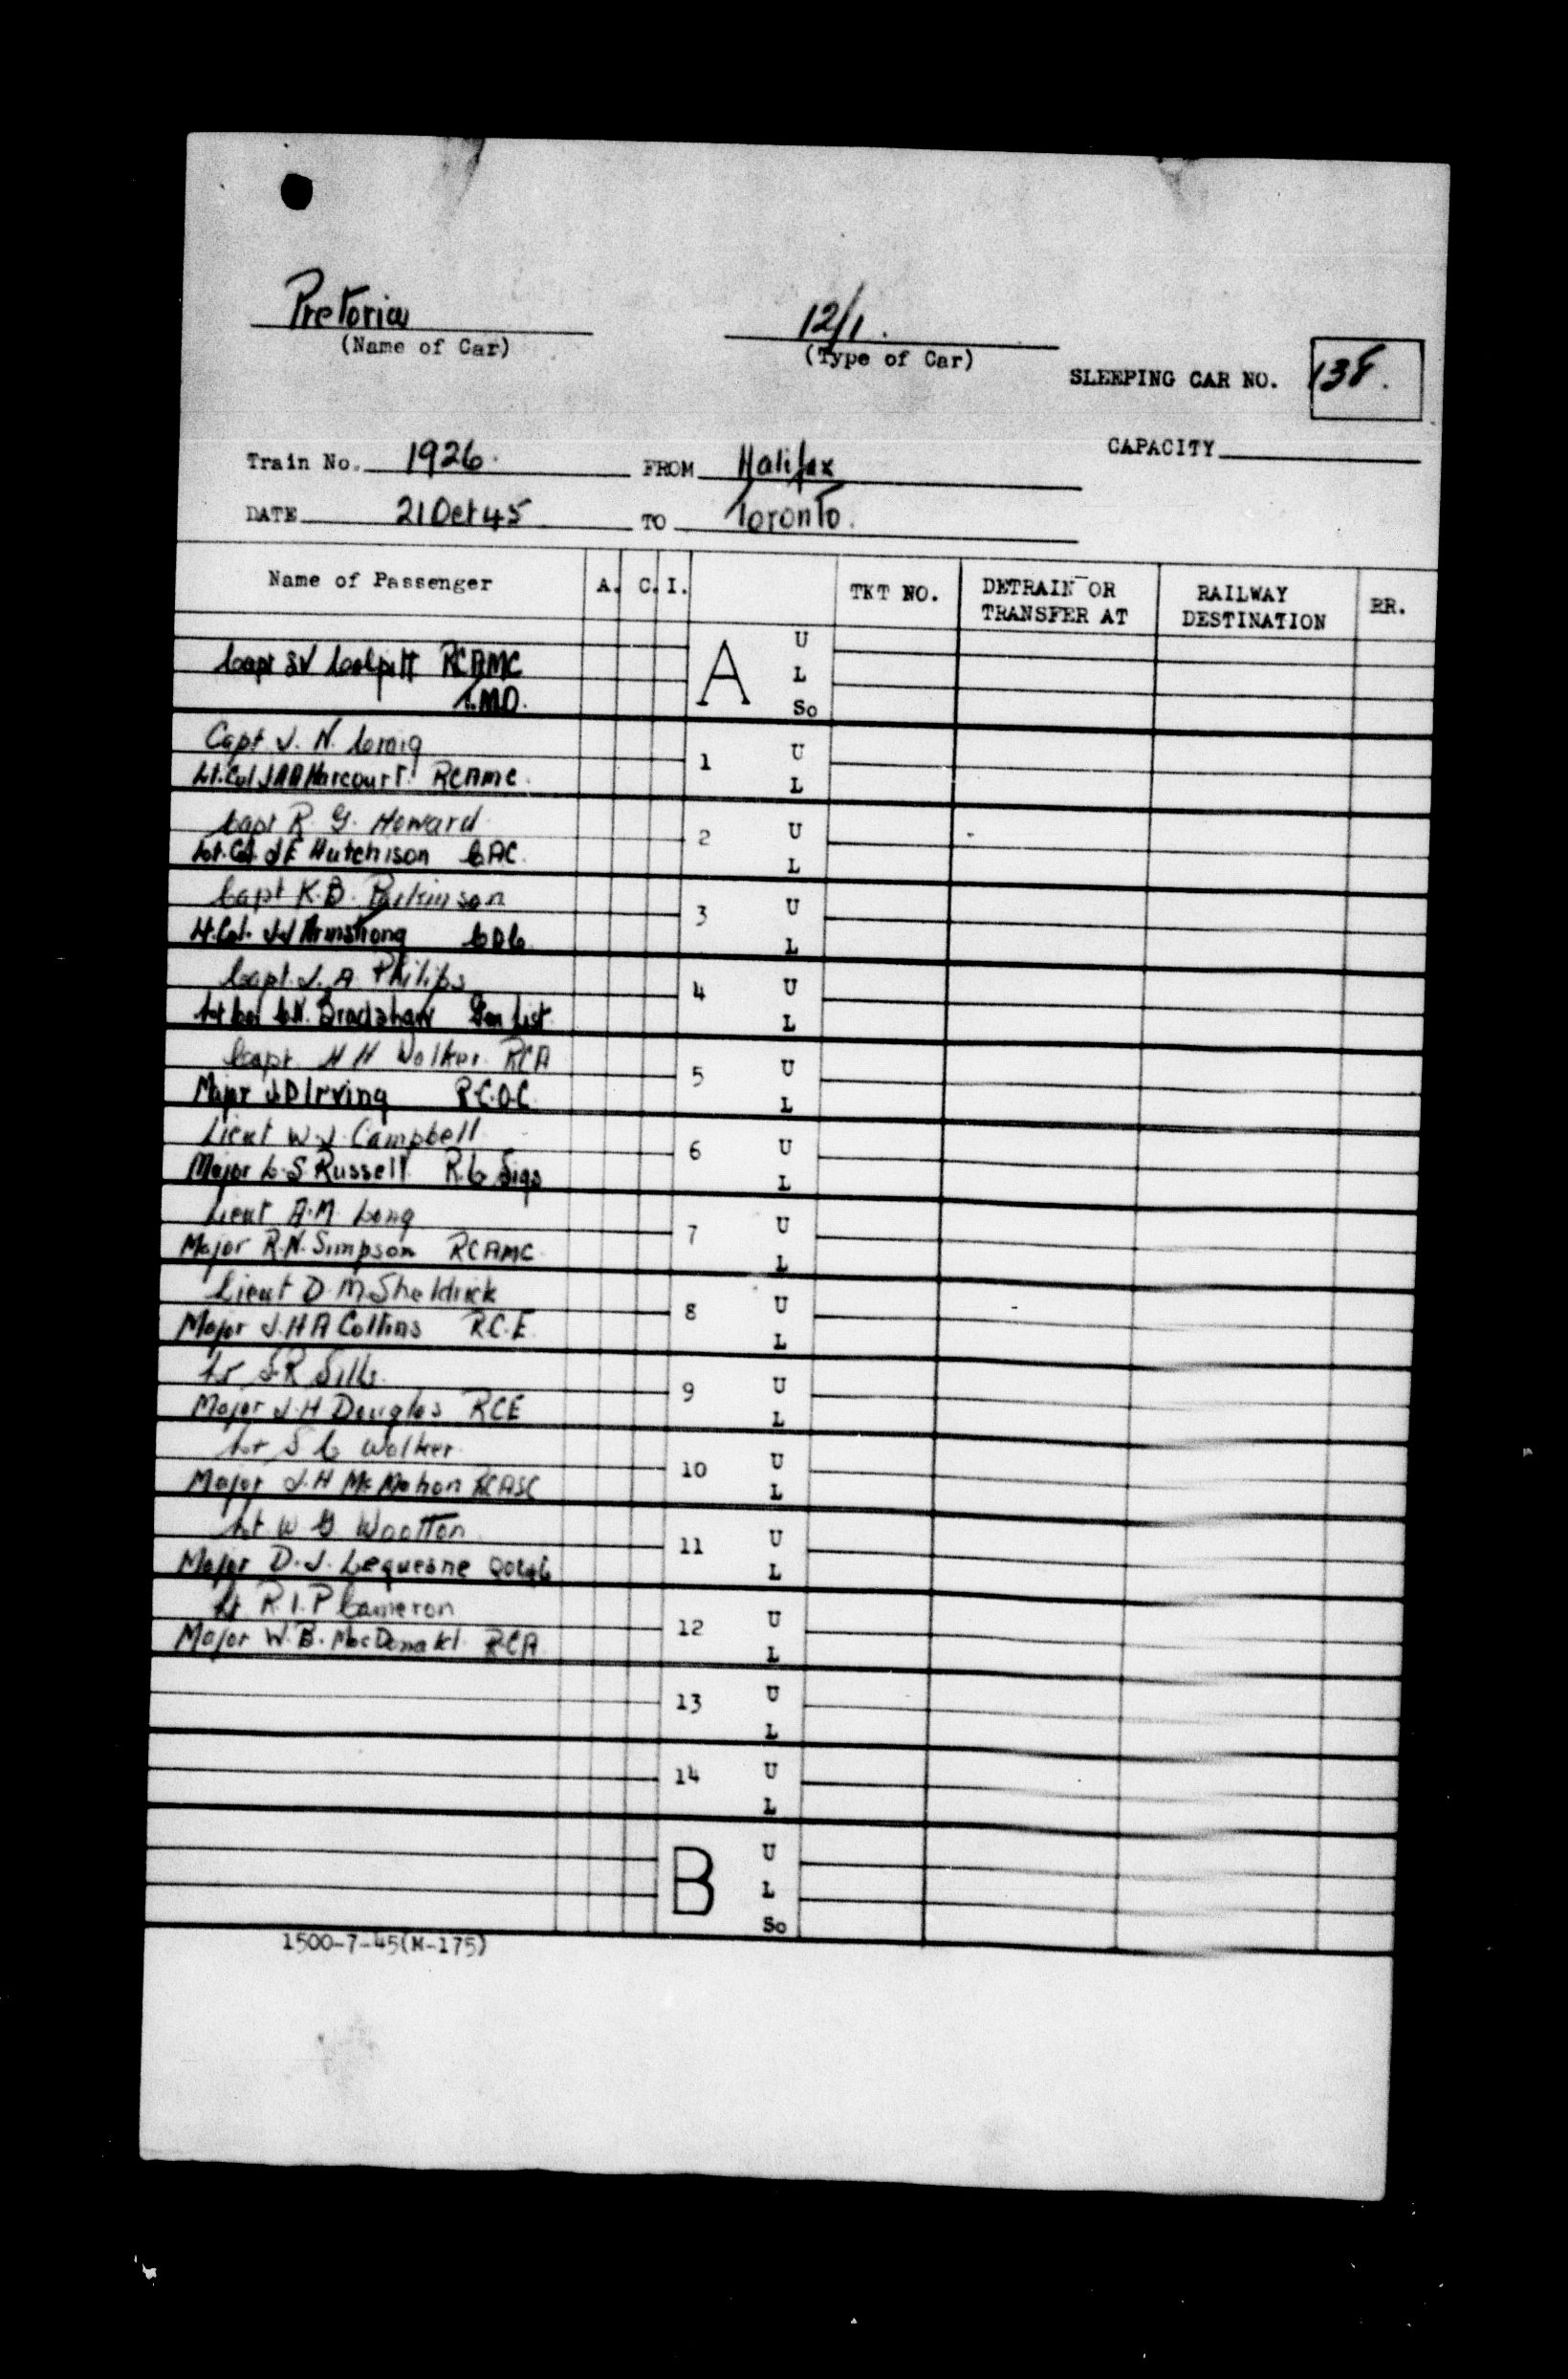 Pretoria
(Name of Car)
12/1.
(Type of Car)
SLEEPING CAR NO. 138.
CAPACITY
Train No. 1926. FROM Halifax
DATE 21 Oct 45 TO Toronto.
Name of Passenger A. C. I. TKT NO. DETRAIN OR TRANSFER AT RAILWAY DESTINATION RR.
Capt SV Colpitt RCAMC A U
L
T.M.O. So
Capt J. N. Craig 1 U
Lt. Col JAD Harcourt. RCAMC. L
Capt R. G. Howard 2 U
Lt. Col. JE Hutchison CAC. L
Capt K.B. Parkinson 3 U
Lt. Col. JJ Armstrong CDC L
Capt. J. A. Philips 4 U
Lt Col C.N. Bradshaw Gen List L
Capt. H H Walker. RCA 5 U
Major J.D Irving R.C.O.C. L
Lieut W.J. Campbell 6 U
Major C.S Russell R.C Sigs L
Lieut A.M. Long 7 U
Major R.N. Simpson RCAMC L
Lieut D. M Sheldrick 8 U
Major J.H A Collins R.C.E. L
Lt S.R Sills. 9 U
Major J.H Douglas RCE L
Lt S C Walker. 10 U
Major J.H McMahon RCASC L
Lt W G Wootton 11 U
Major D.J. Lequesne L
Lt R.I.P Cameron 12 U
Major W.B. MacDonald RCA L
13 U
L
14 U
L
B U
L
So
1500-7-45(M-175)